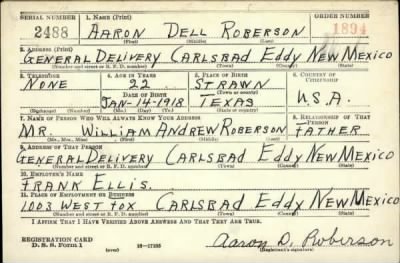 SERIAL NUMBER 1. NAME (Print) ORDER NUMBER
2488 AARON DELL ROBERSON 1894
(First) (Middle) (Last)
2. ADDRESS (Print)
GENERAL DELIVERY CARLSBAD EDDY NEW MEXICO
(Number and street or R. F. D. number) (Town) (County) (State)
3. TELEPHONE 4. AGE IN YEARS 5. PLACE OF BIRTH 6. COUNTRY OF CITIZENSHIP
NONE 22 STRAWN
DATE OF BIRTH (Town or county)
JAN-14-1918 TEXAS U.S.A.
(Exchange) (Number) (Mo.) (Day) (Yr.) (State or country)
7. NAME OF PERSON WHO WILL ALWAYS KNOW YOUR ADDRESS 8. RELATIONSHIP OF THAT PERSON
MR. WILLIAM ANDREW ROBERSON FATHER
(Mr., Mrs., Miss) (First) (Middle) (Last)
9. ADDRESS OF THAT PERSON
GENERAL DELIVERY CARLSBAD EDDY NEW MEXICO
(Number and street or R. F. D. number) (Town) (County) (State)
10. EMPLOYER'S NAME
FRANK ELLIS.
11. PLACE OF EMPLOYMENT OR BUSINESS
1003 WEST FOX CARLSBAD EDDY NEW MEXICO
(Number and street or R. F. D. number) (Town) (County) (State)
I AFFIRM THAT I HAVE VERIFIED ABOVE ANSWERS AND THAT THEY ARE TRUE.
REGISTRATION CARD
D. S. S. Form 1 (over) 16-17105 Aaron D. Roberson
(Registrant's signature)